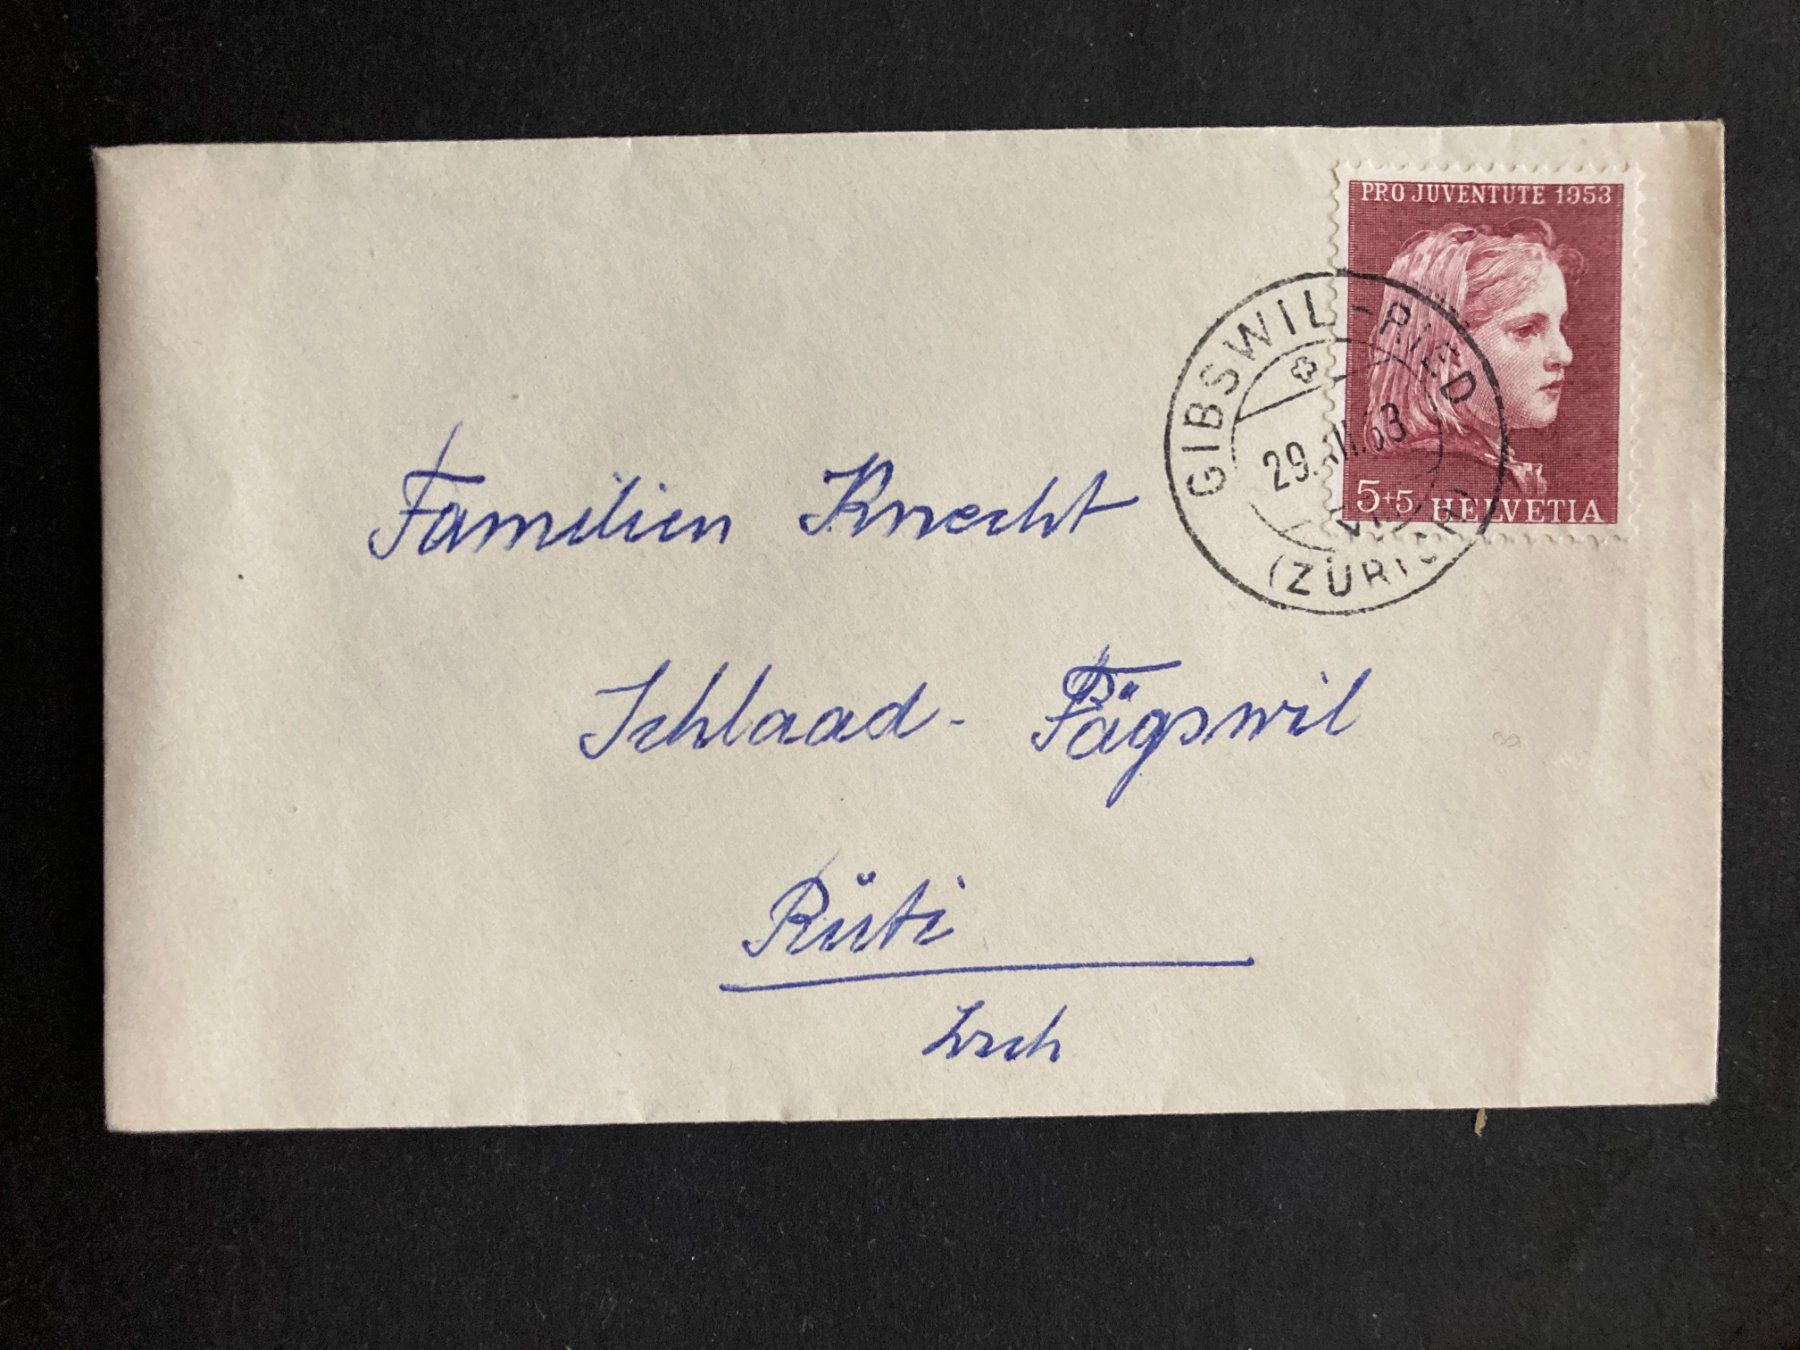 PRO JUVENTUTE 1953
5+5 HELVETIA
GIBSWIL-RIED
(ZÜRICH)
Familien Knecht
Schlaad - Fägswil
Rüti
Zrch